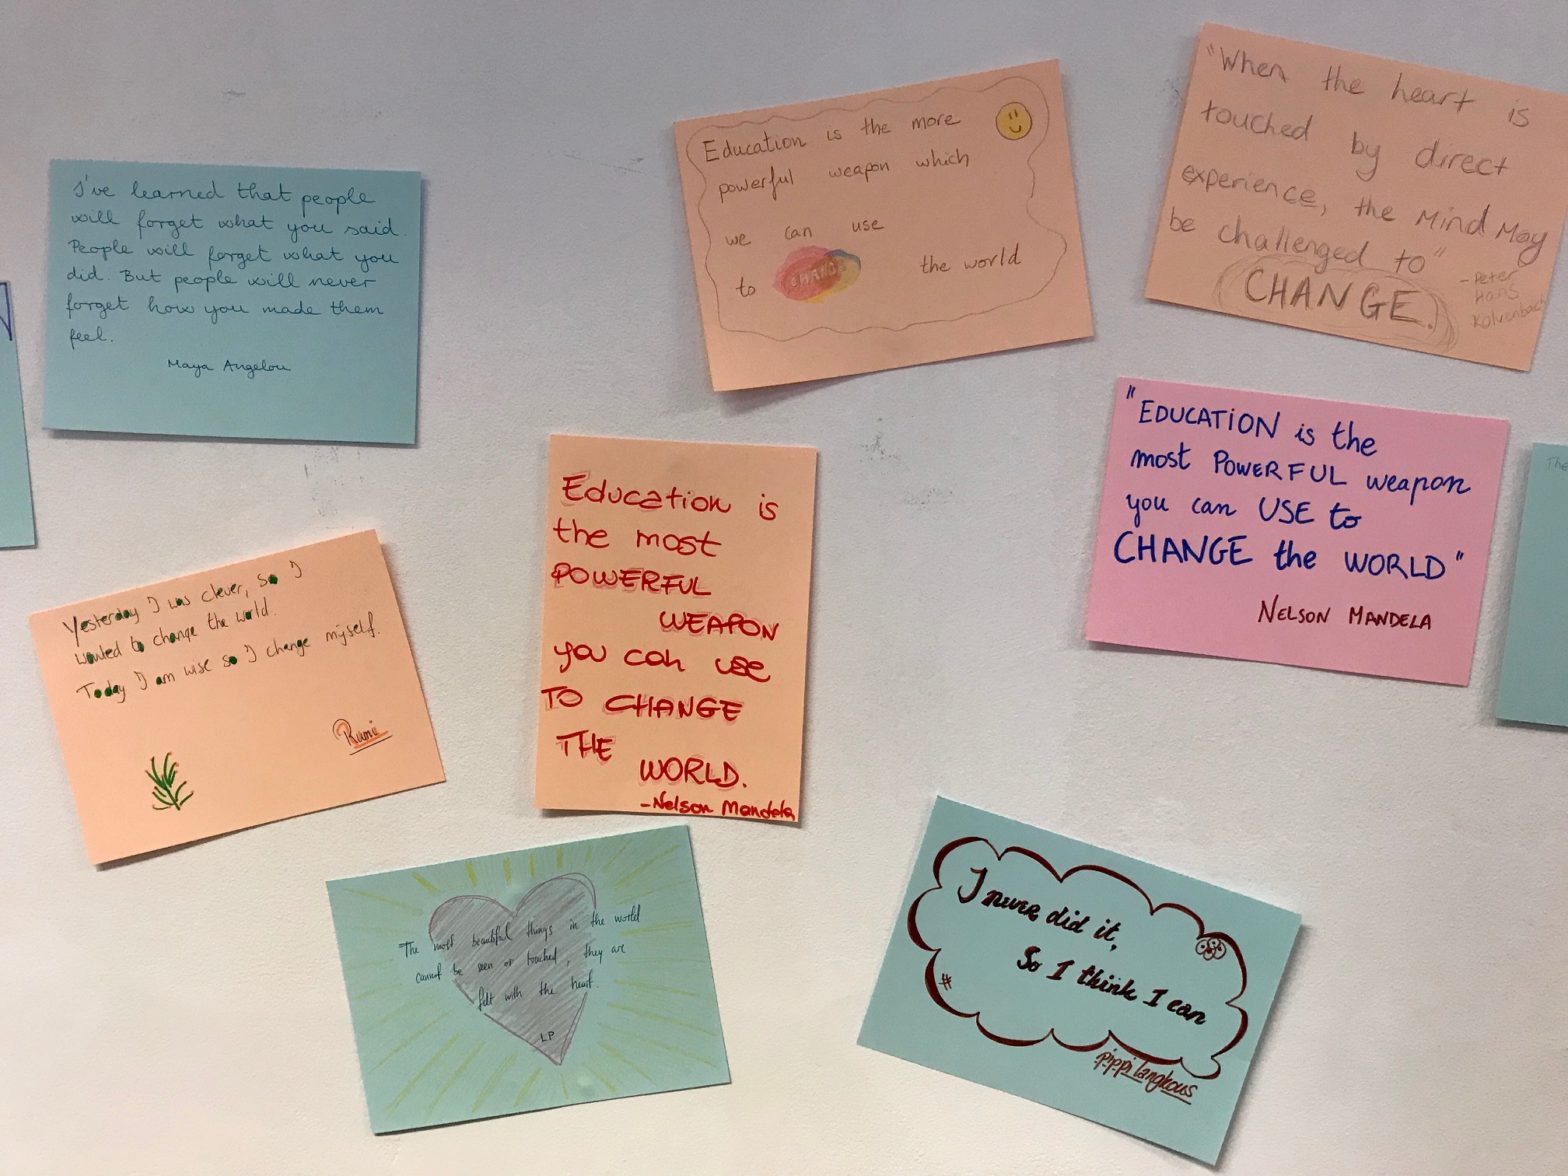 I've learned that people
will forget what you said.
People will forget what you
did. But people will never
forget how you made them
feel.
Maya Angelou
Education is the more
powerful weapon which
we can use
to change the world
"When the heart is
touched by direct
experience, the Mind May
be challenged to"
CHANGE.
-Peter
Hans
Kolvenbach
"EDUCATION is the
most POWERFUL weapon
you can USE to
CHANGE the WORLD"
NELSON MANDELA
Education is
the most
POWERFUL
WEAPON
you can use
TO CHANGE
THE
WORLD.
-Nelson Mandela
Yesterday I was clever, so I
wanted to change the world.
Today I am wise so I change myself.
Rumi
The most beautiful things in the world
cannot be seen or touched, they are
felt with the heart
LP
I never did it,
So I think I can
#
pippi langkous
The